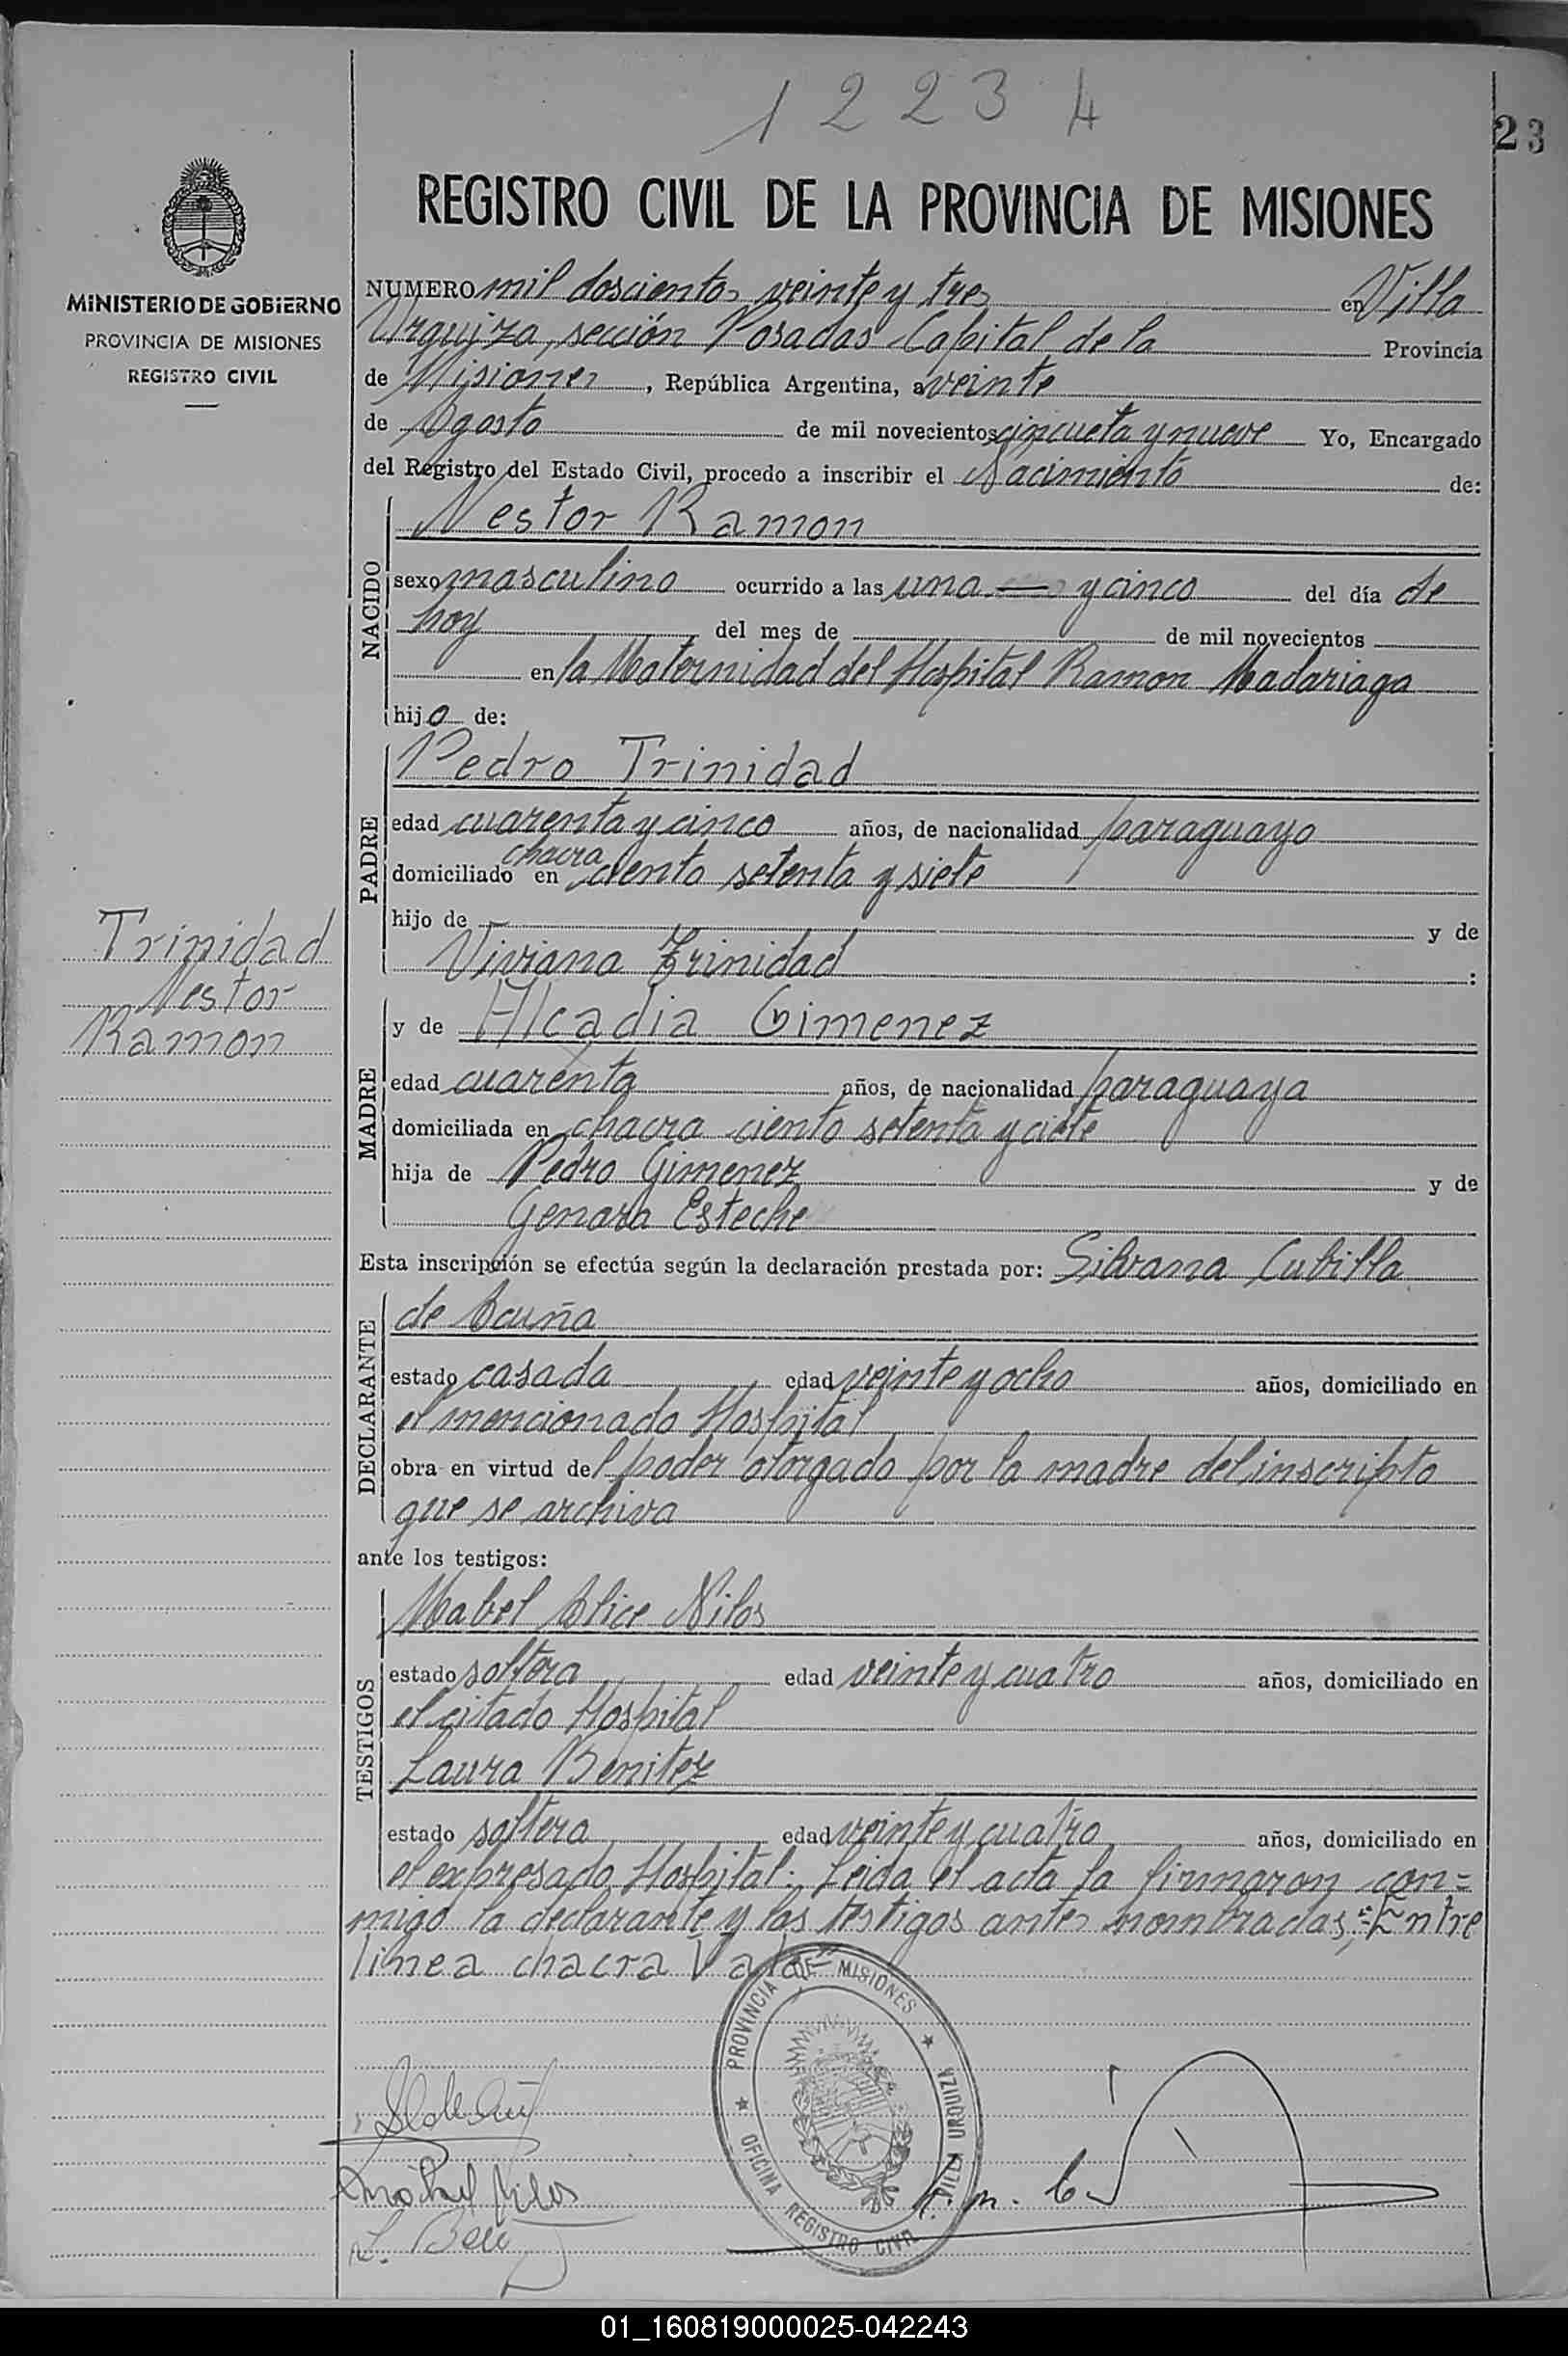 1223 4
23
MINISTERIO DE GOBIERNO
PROVINCIA DE MISIONES
REGISTRO CIVIL
REGISTRO CIVIL DE LA PROVINCIA DE MISIONES
NUMERO mil doscientos veinte y tres en Villa
Urquiza, sección Posadas Capital de la Provincia
de Misiones, República Argentina, a veinte
de Agosto de mil novecientos cincueta y nueve Yo, Encargado
del Registro del Estado Civil, procedo a inscribir el Nacimiento de:
NACIDO
Nestor Ramon
sexo masculino ocurrido a las una — y cinco del día de
hoy del mes de de mil novecientos
en la Maternidad del Hospital Ramon Madariaga
hijo de:
PADRE
Pedro Trinidad
edad cuarenta y cinco años, de nacionalidad paraguayo
chacra
domiciliado en ciento setenta y siete
hijo de y de
Viviana Trinidad :
Trinidad
Nestor
Ramon
MADRE
y de Alcadia Gimenez
edad cuarenta años, de nacionalidad paraguaya
domiciliada en chacra ciento setenta y ciete
hija de Pedro Gimenez y de
Genara Esteche
Esta inscripción se efectúa según la declaración prestada por: Silvana Cubilla
DECLARANTE
de Acuña
estado casada edad veinte y ocho años, domiciliado en
el mencionado Hospital
obra en virtud del poder otorgado por la madre del inscripto
que se archiva
ante los testigos:
TESTIGOS
Mabel Alice Nilos
estado soltera edad veinte y cuatro años, domiciliado en
el citado Hospital
Laura Benitez
estado soltera edad veinte y cuatro años, domiciliado en
el expresado Hospital. Leida el acta la firmaron con=
migo la declarante y las testigos antes nombradas. Entre
linea chacra Vale
PROVINCIA DE MISIONES
OFICINA REGISTRO CIVIL VILLA URQUIZA
Mabel Nilos
01_160819000025-042243